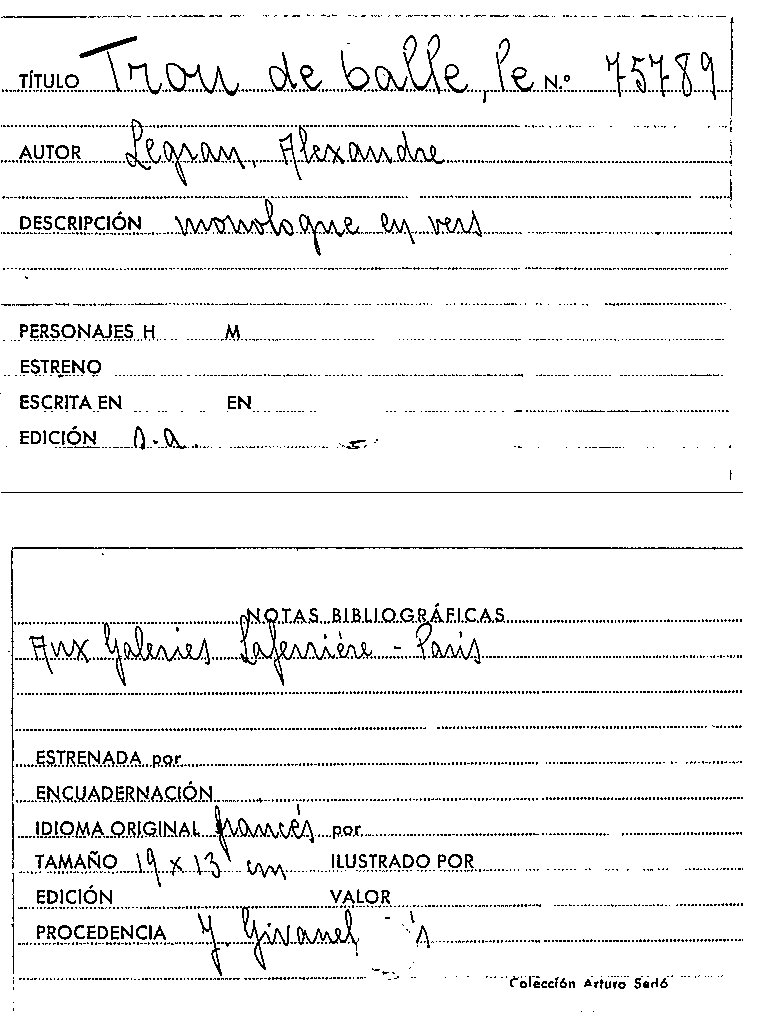 TÍTULO Trou de balle, le N.º 75789
AUTOR Legran, Alexandre
DESCRIPCIÓN monologue en vers
PERSONAJES H M
ESTRENO
ESCRITA EN EN
EDICIÓN s.a.
NOTAS BIBLIOGRÁFICAS
Aux Galeries Laferrière - Paris
ESTRENADA por
ENCUADERNACIÓN
IDIOMA ORIGINAL francés por
TAMAÑO 19 x 13 cm ILUSTRADO POR
EDICIÓN VALOR
PROCEDENCIA J. Givanel
Colección Arturo Sedó